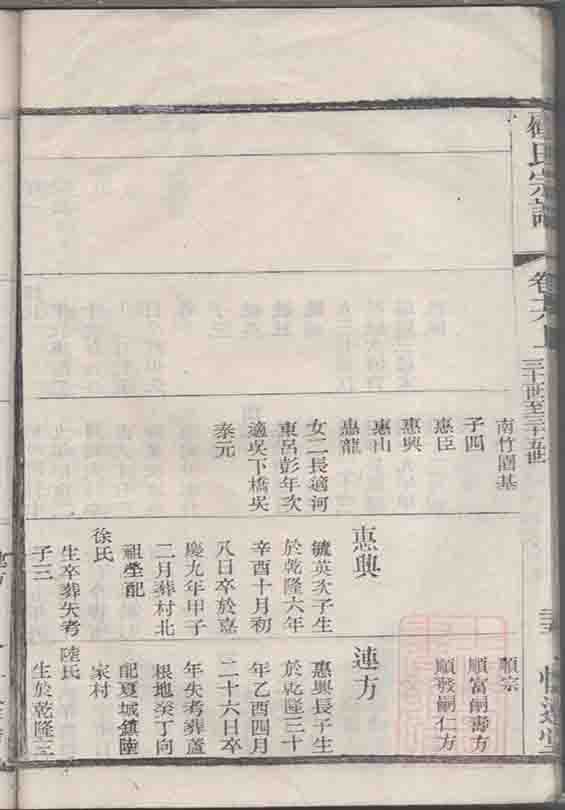 氏宗譜
卷六上
三十一世至三十五世
南竹園基
子四
惠臣
惠興
惠山
惠龍
女二長適河
東呂彭年次
適吳下橋吳
泰元
惠興
毓英次子生
於乾隆六年
辛酉十月初
八日卒於嘉
慶九年甲子
二月葬村北
祖塋配
徐氏
生卒葬失考
子三
順宗
順富嗣壽方
順發嗣仁方
連方
惠興長子生
於乾隆三十
年乙酉四月
二十六日卒
年失考葬蘆
根地癸丁向
配夏城鎮陸
家村
陸氏
生於乾隆三